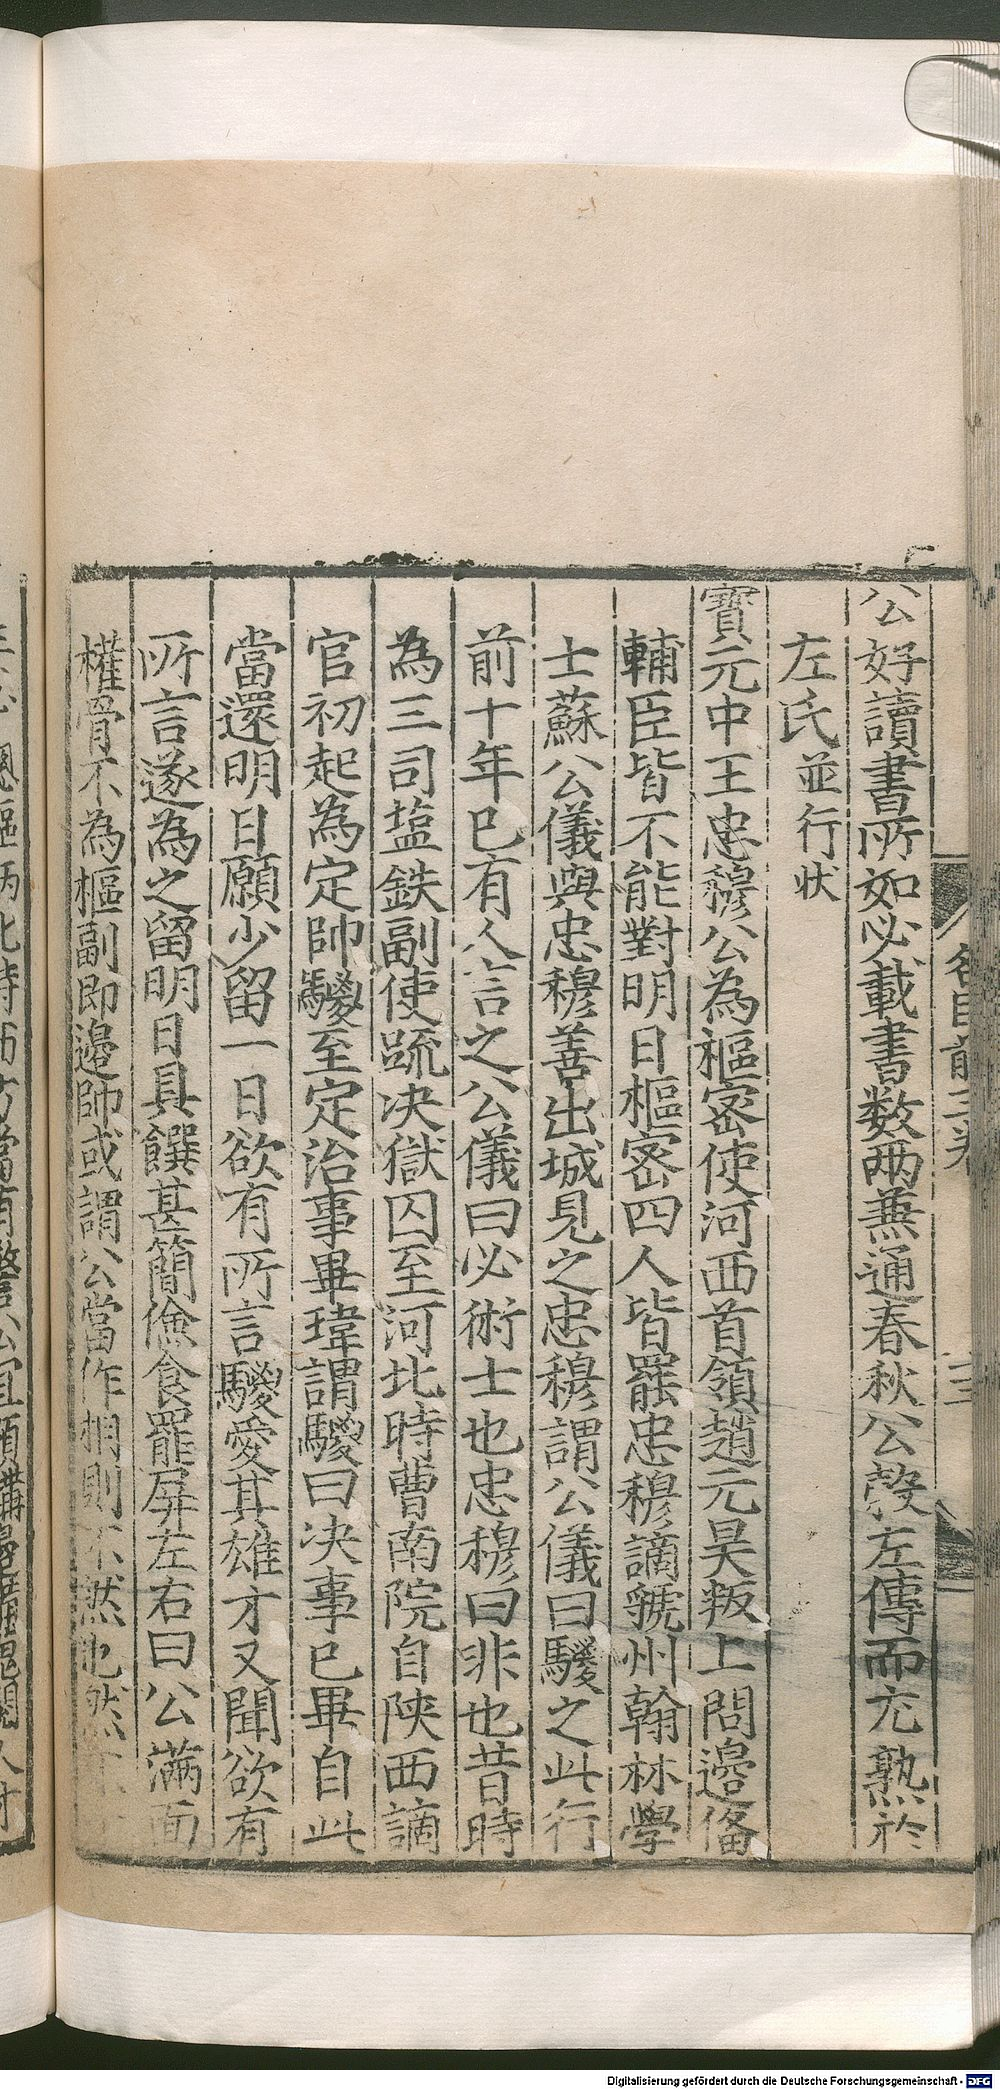 公好讀書所如必載書数兩兼通春秋公糓左傳而尤熟於
左氏並行狀
寳元中王忠穆公為樞宻使河西首領趙元昊叛上問邉俻
輔臣皆不能對明日樞宻四人皆罷忠穆謫虢州翰林學
士蘇公儀與忠穆善出城見之忠穆謂公儀曰鬷之此行
前十年已有人言之公儀曰必術士也忠穆曰非也昔時
為三司塩鉄副使䟽决獄囚至河北時曹南院自陕西謫
官初起為定帥鬷至定治事畢瑋謂鬷曰决事已畢自此
當還明日願少留一日欲有所言鬷愛其雄才又聞欲有
所言遂為之留明日具饌甚簡儉食罷屏左右曰公滿面
權骨不為樞副即邉帥或謂公當作相則不然也然
名臣前三卷
十三
Digitalisierung gefördert durch die Deutsche Forschungsgemeinschaft - DFG